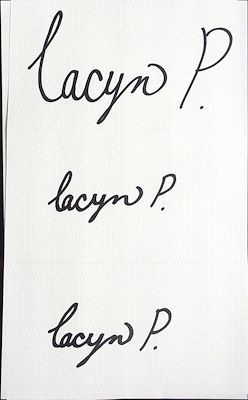 lacyn P.
lacyn P.
lacyn P.